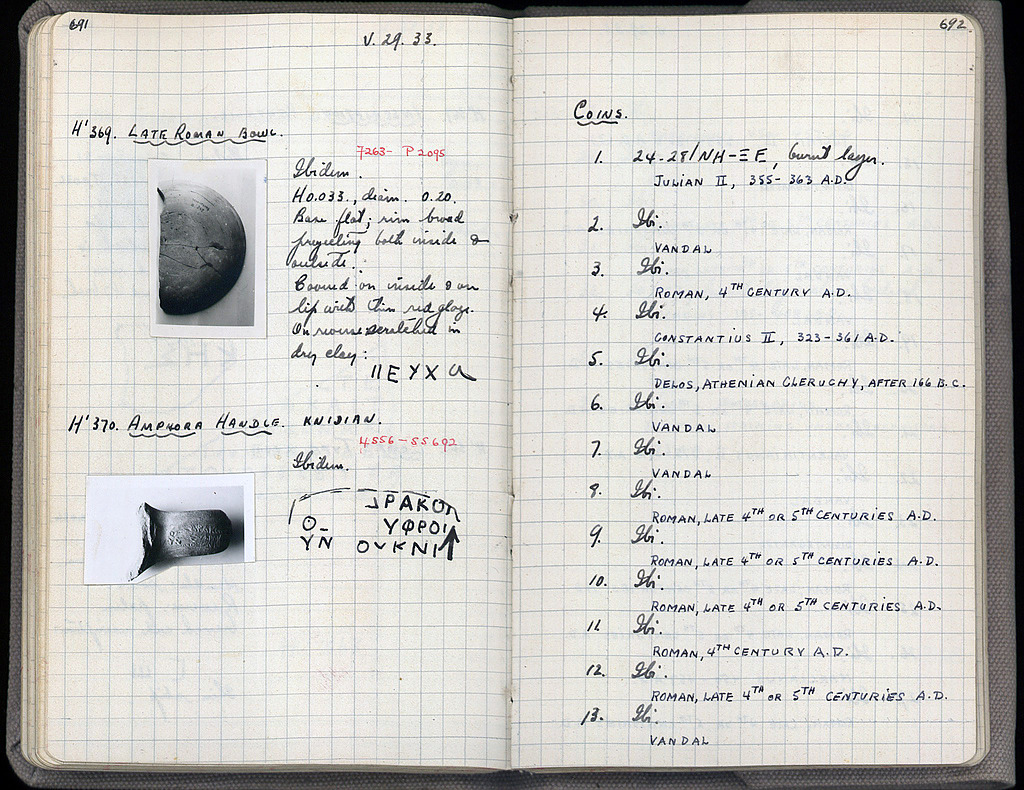 691
V. 29. 33.
H'369. LATE ROMAN BOWL.
7263 - P 2095
Ibidem.
H 0.033., diam. 0.20.
Base flat; rim broad
projecting both inside &
outside.
Covered on inside & on
lip with thin red glaze.
On reverse scratched in
dry clay:
ΙΙΕΥΧ
H'370. AMPHORA HANDLE. KNIDIAN.
4556 - SS 692
Ibidem.
ΡΑΚΟ
Ο_ ΥΦΡΟΙ
ΥΝ ΟΥΚΝΙ
692
COINS.
1. 24-28/ΝΗ-ΞΕ, burnt layer.
JULIAN II, 355-363 A.D.
2. Ibi.
VANDAL
3. Ibi.
ROMAN, 4TH CENTURY A.D.
4. Ibi.
CONSTANTIUS II, 323-361 A.D.
5. Ibi.
DELOS, ATHENIAN CLERUCHY, AFTER 166 B.C.
6. Ibi.
VANDAL
7. Ibi.
VANDAL
8. Ibi.
ROMAN, LATE 4TH OR 5TH CENTURIES A.D.
9. Ibi.
ROMAN, LATE 4TH OR 5TH CENTURIES A.D.
10. Ibi.
ROMAN, LATE 4TH OR 5TH CENTURIES A.D.
11. Ibi.
ROMAN, 4TH CENTURY A.D.
12. Ibi.
ROMAN, LATE 4TH OR 5TH CENTURIES A.D.
13. Ibi.
VANDAL